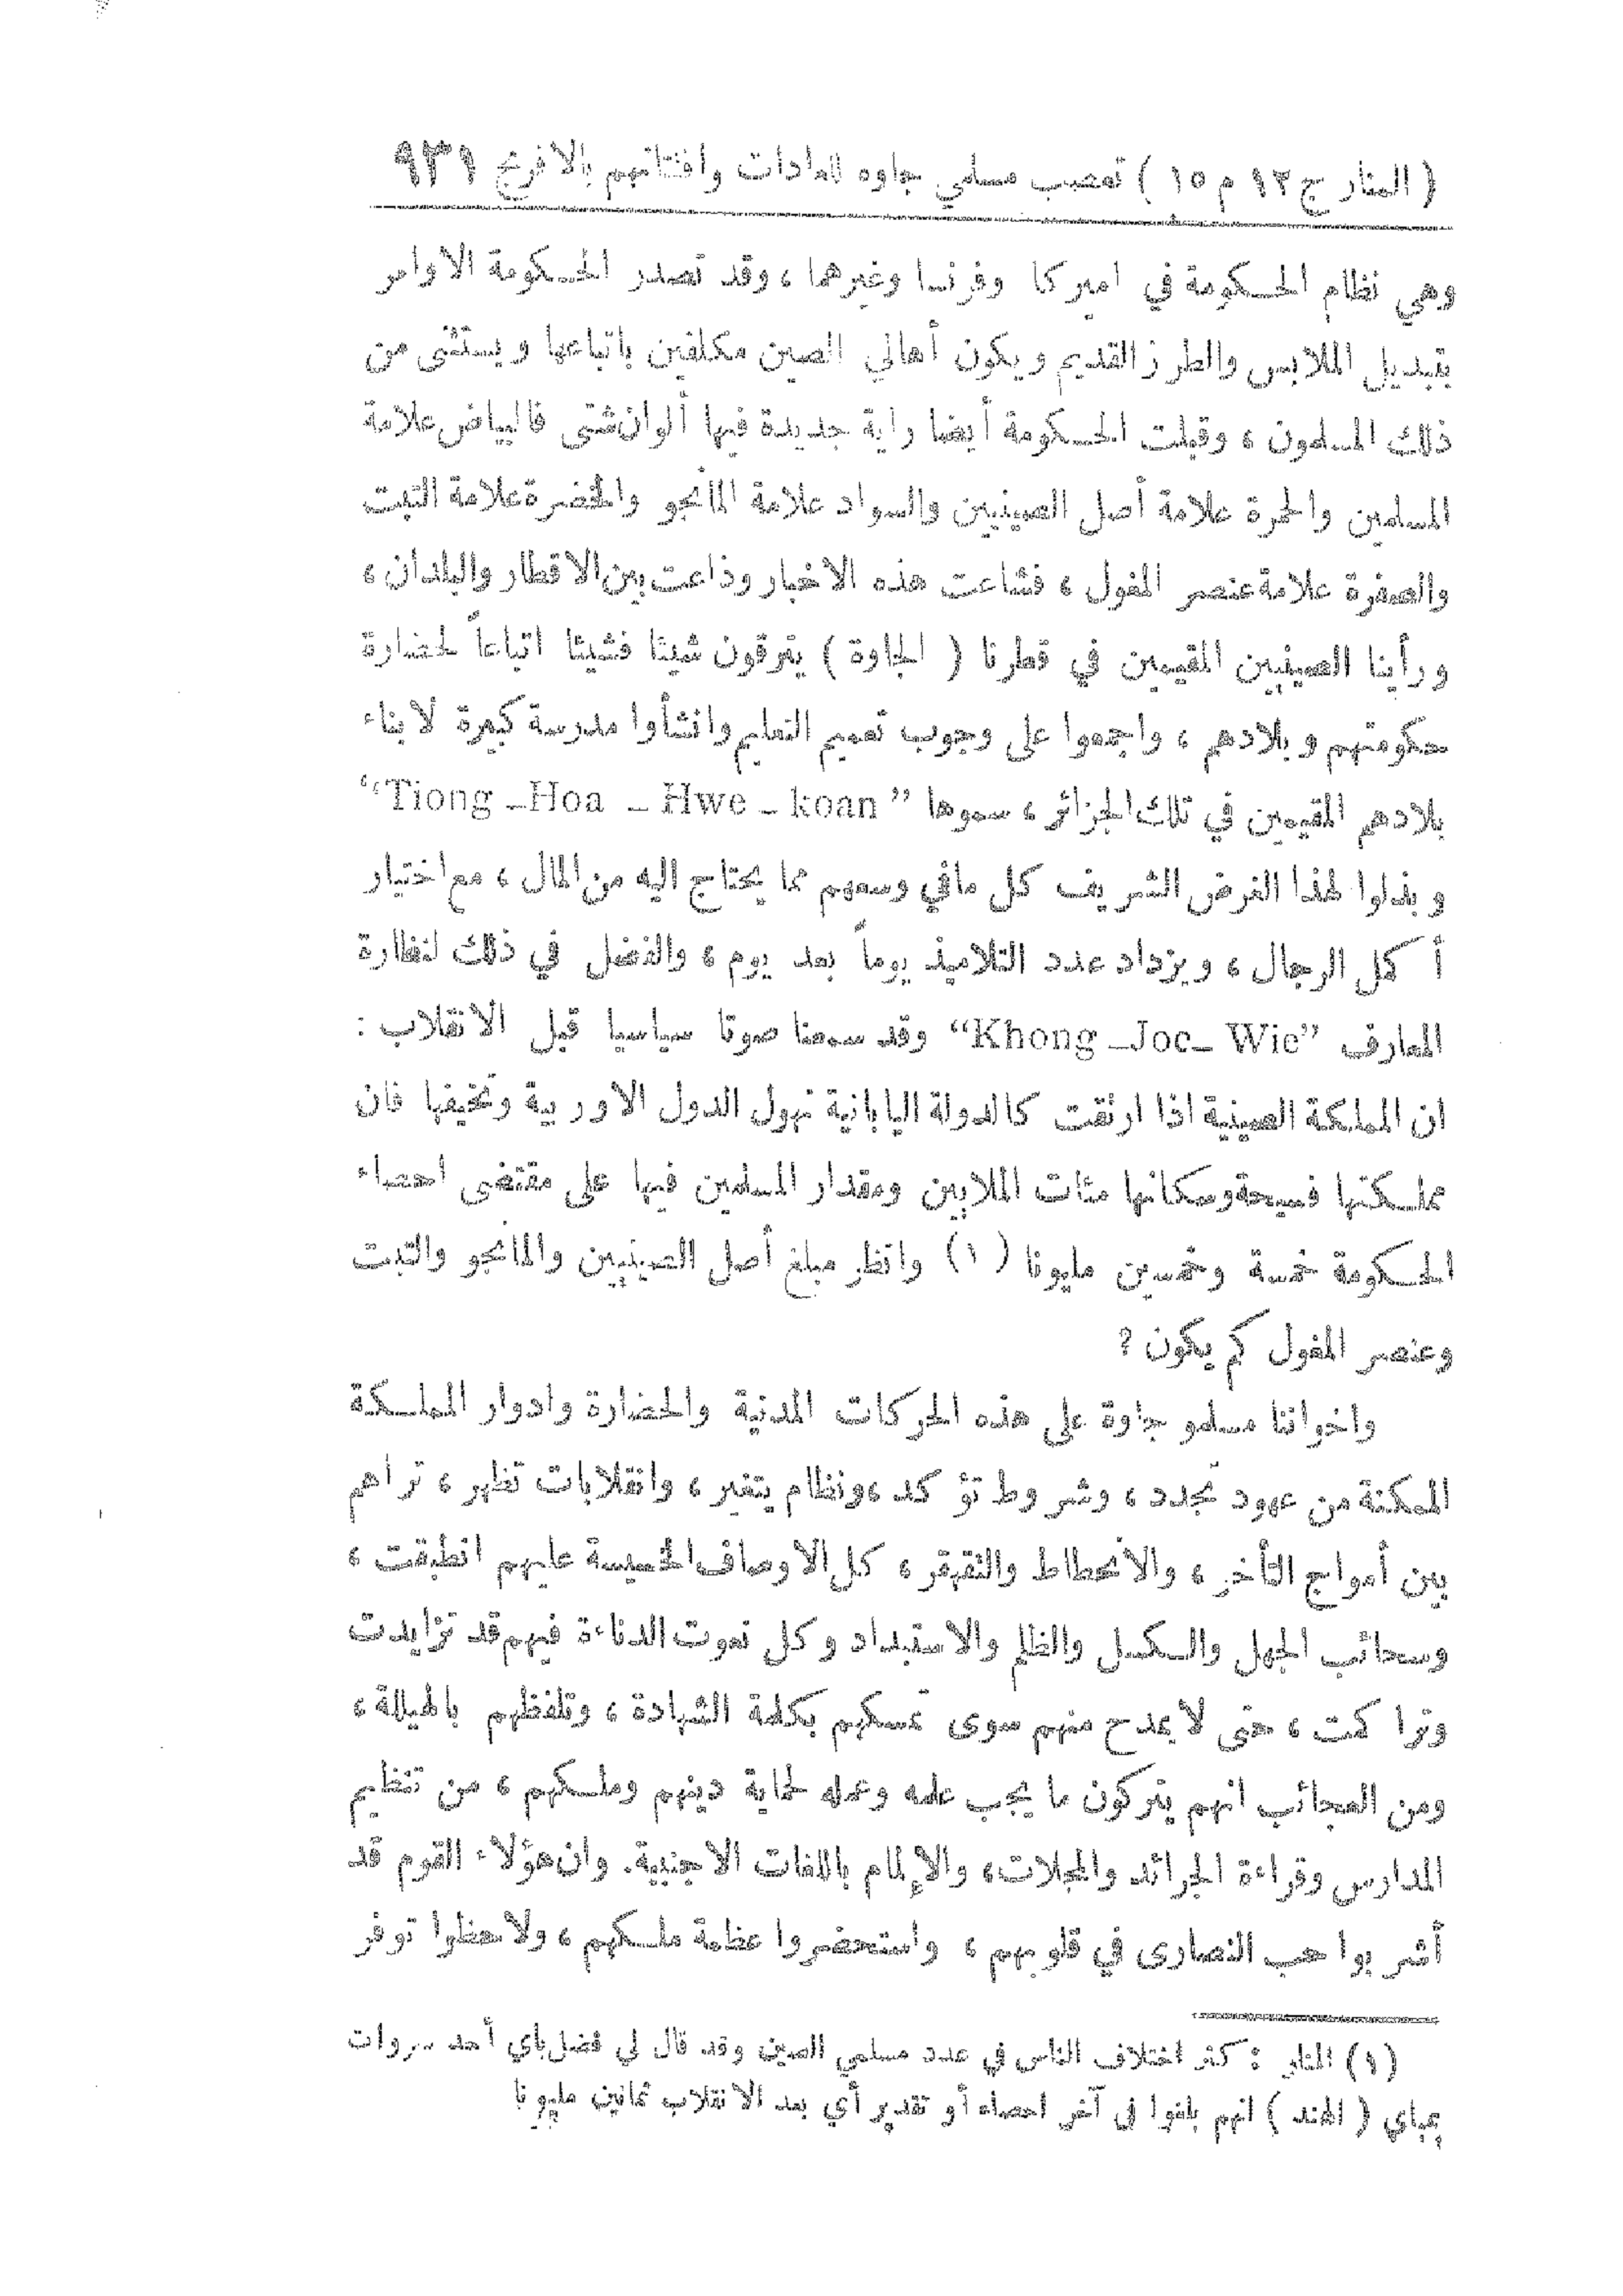 ( المنار ج ١٢ م ١٥ ) تعصب مسلمي جاوه للعادات وافتتانهم بالافرنج ٩٣١
وهي نظام الحكومة في اميركا وفرنسا وغيرهما ، وقد تصدر الحكومة الاوامر
بتبديل الملابس والطرز القديم ويكون أهالي الصين مكلفين باتباعها ويستثنى من
ذلك المسلمون ، وقبلت الحكومة أيضا راية جديدة فيها ألوان شتى فالبياض علامة
المسلمين والحمرة علامة أصل الصينيين والسواد علامة المانجو والخضرة علامة التبت
والصفرة علامة عنصر المغول ، فشاعت هذه الاخبار وذاعت بين الاقطار والبلدان ،
ورأينا الصينيين المقيمين في قطرنا ( الجاوة ) يترقون شيئا فشيئا اتباعاً لحضارة
حكومتهم وبلادهم ، واجمعوا على وجوب تعميم التعليم وانشأوا مدرسة كبيرة لابناء
بلادهم المقيمين في تلك الجزائر ، سموها “Tiong _Hoa _ Hwe _ koan”
وبذلوا لهذا الغرض الشريف كل مافي وسعهم مما يحتاج اليه من المال ، مع اختيار
أكمل الرجال ، ويزداد عدد التلاميذ يوماً بعد يوم ، والفضل في ذلك لنظارة
المعارف “Khong _Joc_ Wie” وقد سمعنا صوتا سياسيا قبل الانقلاب :
ان المملكة الصينية اذا ارتقت كالدولة اليابانية تهول الدول الاوربية وتخيفها فان
مملكتها فسيحة وسكانها مئات الملايين ومقدار المسلمين فيها على مقتضى احصاء
الحكومة خمسة وخمسين مليونا ( ١ ) وانظر مبلغ أصل الصينيين والمانجو والتبت
وعنصر المغول كم يكون ?
واخواننا مسلمو جاوة على هذه الحركات المدنية والحضارة وادوار المملكة
الممكنة من عهود تجدد ، وشروط تؤكد ، ونظام يتغير ، وانقلابات تظهر ، تراهم
بين أمواج التأخر ، والانحطاط والتقهقر ، كل الاوصاف الخسيسة عليهم انطبقت ،
وسحائب الجهل والكسل والظلم والاستبداد وكل نعوت الدناءة فيهم قد تزايدت
وتراكمت ، حتى لا يمدح منهم سوى تمسكهم بكلمة الشهادة ، وتلفظهم بالهيللة ،
ومن العجائب انهم يتركون ما يجب علمه وعمله لحماية دينهم وملكهم ، من تنظيم
المدارس وقراءة الجرائد والمجلات ، والإلمام باللغات الاجنبية. وان هؤلاء القوم قد
أشربوا حب النصارى في قلوبهم ، واستحضروا عظمة ملكهم ، ولاحظوا توفر
(١) المنار : كثر اختلاف الناس في عدد مسلمي الصين وقد قال لي فضل باي أحد سروات
بمباي ( الهند ) انهم بلغوا في آخر احصاء أو تقدير أي بعد الانقلاب ثمانين مليونا